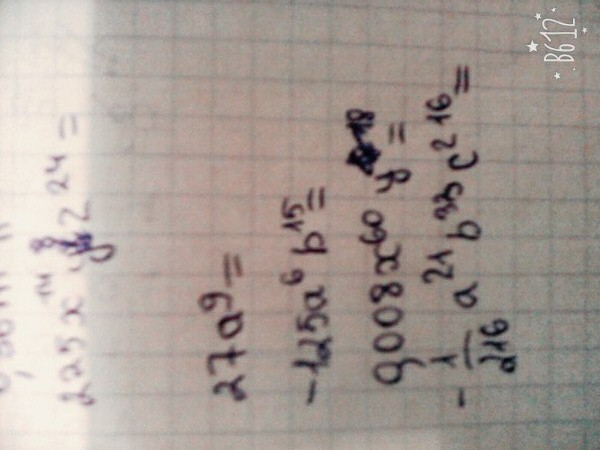 225x¹⁴y⁸z²⁴=
27a⁹=
-125a⁶b¹⁵=
0,008x⁶⁰y¹⁸=
-1/216 a²¹b³³c²¹⁶=
B612